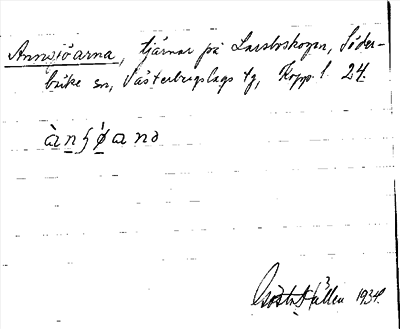 Annsjöarna, tjärnar på Larsboskogen, Söder-
bärke sn, Västerbergslags tg, Kopp. l. 24.
ànʃǿanɔ
1934.